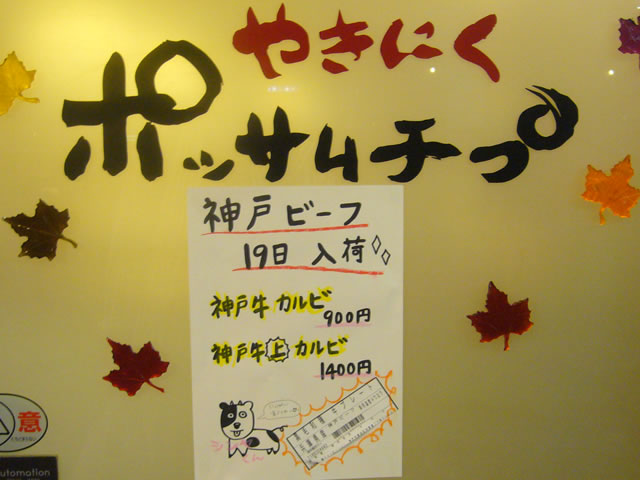 やきにく
ポッサムチプ
神戸ビーフ
19日 入荷
神戸牛カルビ
900円
神戸牛上カルビ
1400円
意
utomation